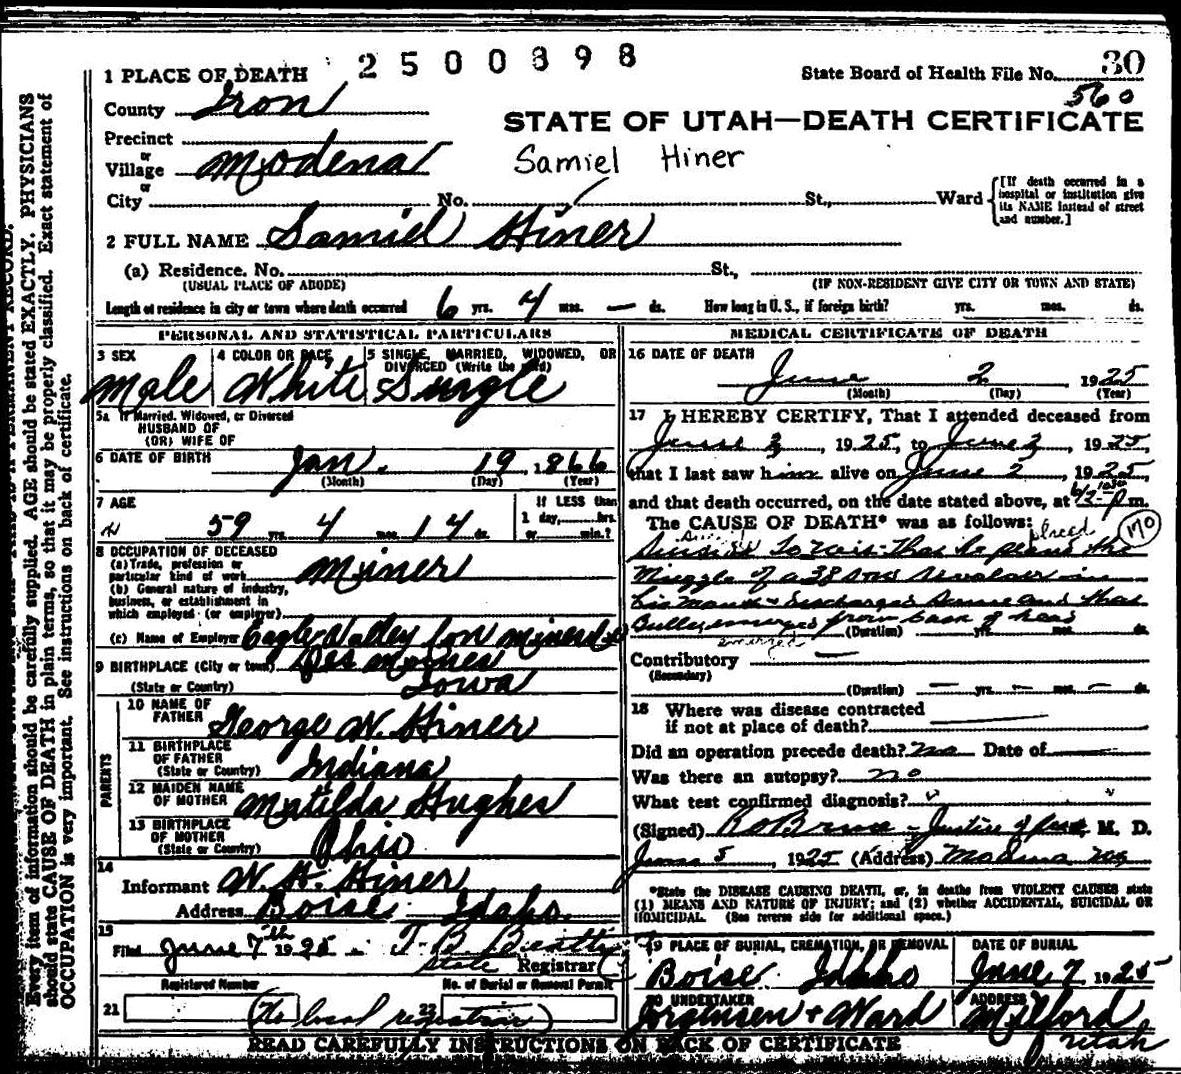 2500398
1 PLACE OF DEATH
State Board of Health File No. 30
County Iron
560
STATE OF UTAH—DEATH CERTIFICATE
Precinct
or
Village Modena
Samiel Hiner
or
City No. St., Ward
[If death occurred in a hospital or institution give its NAME instead of street and number.]
2 FULL NAME Samiel Hiner
(a) Residence. No. St.,
(USUAL PLACE OF ABODE) (IF NON-RESIDENT GIVE CITY OR TOWN AND STATE)
Length of residence in city or town where death occurred 6 yrs. 4 mos. — ds. How long in U. S., if foreign birth? yrs. mos. ds.
PERSONAL AND STATISTICAL PARTICULARS
3 SEX Male
4 COLOR OR RACE, White
5 SINGLE, MARRIED, WIDOWED, OR DIVORCED (Write the word) Single
5a If Married, Widowed, or Divorced
HUSBAND OF
(OR) WIFE OF
6 DATE OF BIRTH Jan. 19 1866
(Month) (Day) (Year)
7 AGE
59 yrs. 4 mos. 14 ds.
If LESS than
1 day, hrs.
or min.?
8 OCCUPATION OF DECEASED
(a) Trade, profession or
particular kind of work Miner
(b) General nature of industry,
business, or establishment in
which employed (or employer)
(c) Name of Employer Eagle Valley Con Mines
9 BIRTHPLACE (City or town) Des Moines
(State or Country) Iowa
PARENTS
10 NAME OF
FATHER George W. Hiner
11 BIRTHPLACE
OF FATHER
(State or Country) Indiana
12 MAIDEN NAME
OF MOTHER Matilda Hughes
13 BIRTHPLACE
OF MOTHER
(State or Country) Ohio
14
Informant W. H. Hiner
Address Boise Idaho.
15
Filed June 7th 1925 T. B. Beatty
State Registrar
Registered Number No. of Burial or Removal Permit
21 (No local registrar) 22
MEDICAL CERTIFICATE OF DEATH
16 DATE OF DEATH
June 2 1925
(Month) (Day) (Year)
17 I HEREBY CERTIFY, That I attended deceased from
June 2, 1925, to June 2, 1925,
that I last saw him alive on June 2, 1925,
and that death occurred, on the date stated above, at m.
The CAUSE OF DEATH* was as follows:
placed
170
Suicide To wit: That he placed the
Muzzle of a 38 revolver in
his mouth & discharged same and that
Bullet emerged from back of head
emerged
(Duration) yrs. mos. ds.
Contributory —
(Secondary)
(Duration) — yrs. — mos. — ds.
18 Where was disease contracted
if not at place of death?
Did an operation precede death? no Date of
Was there an autopsy? no
What test confirmed diagnosis?
(Signed) Justice of Peace M. D.
June 5, 1925 (Address) Modena
*State the DISEASE CAUSING DEATH, or, in deaths from VIOLENT CAUSES state
(1) MEANS AND NATURE OF INJURY; and (2) whether ACCIDENTAL, SUICIDAL OR
HOMICIDAL. (See reverse side for additional space.)
19 PLACE OF BURIAL, CREMATION, OR REMOVAL
Boise Idaho
DATE OF BURIAL
June 7 1925
20 UNDERTAKER
Jorgensen + Ward
ADDRESS
Milford
Utah
READ CAREFULLY INSTRUCTIONS ON BACK OF CERTIFICATE
Every item of information should be carefully supplied. AGE should be stated EXACTLY. PHYSICIANS
should state CAUSE OF DEATH in plain terms, so that it may be properly classified. Exact statement of
OCCUPATION is very important. See instructions on back of certificate.